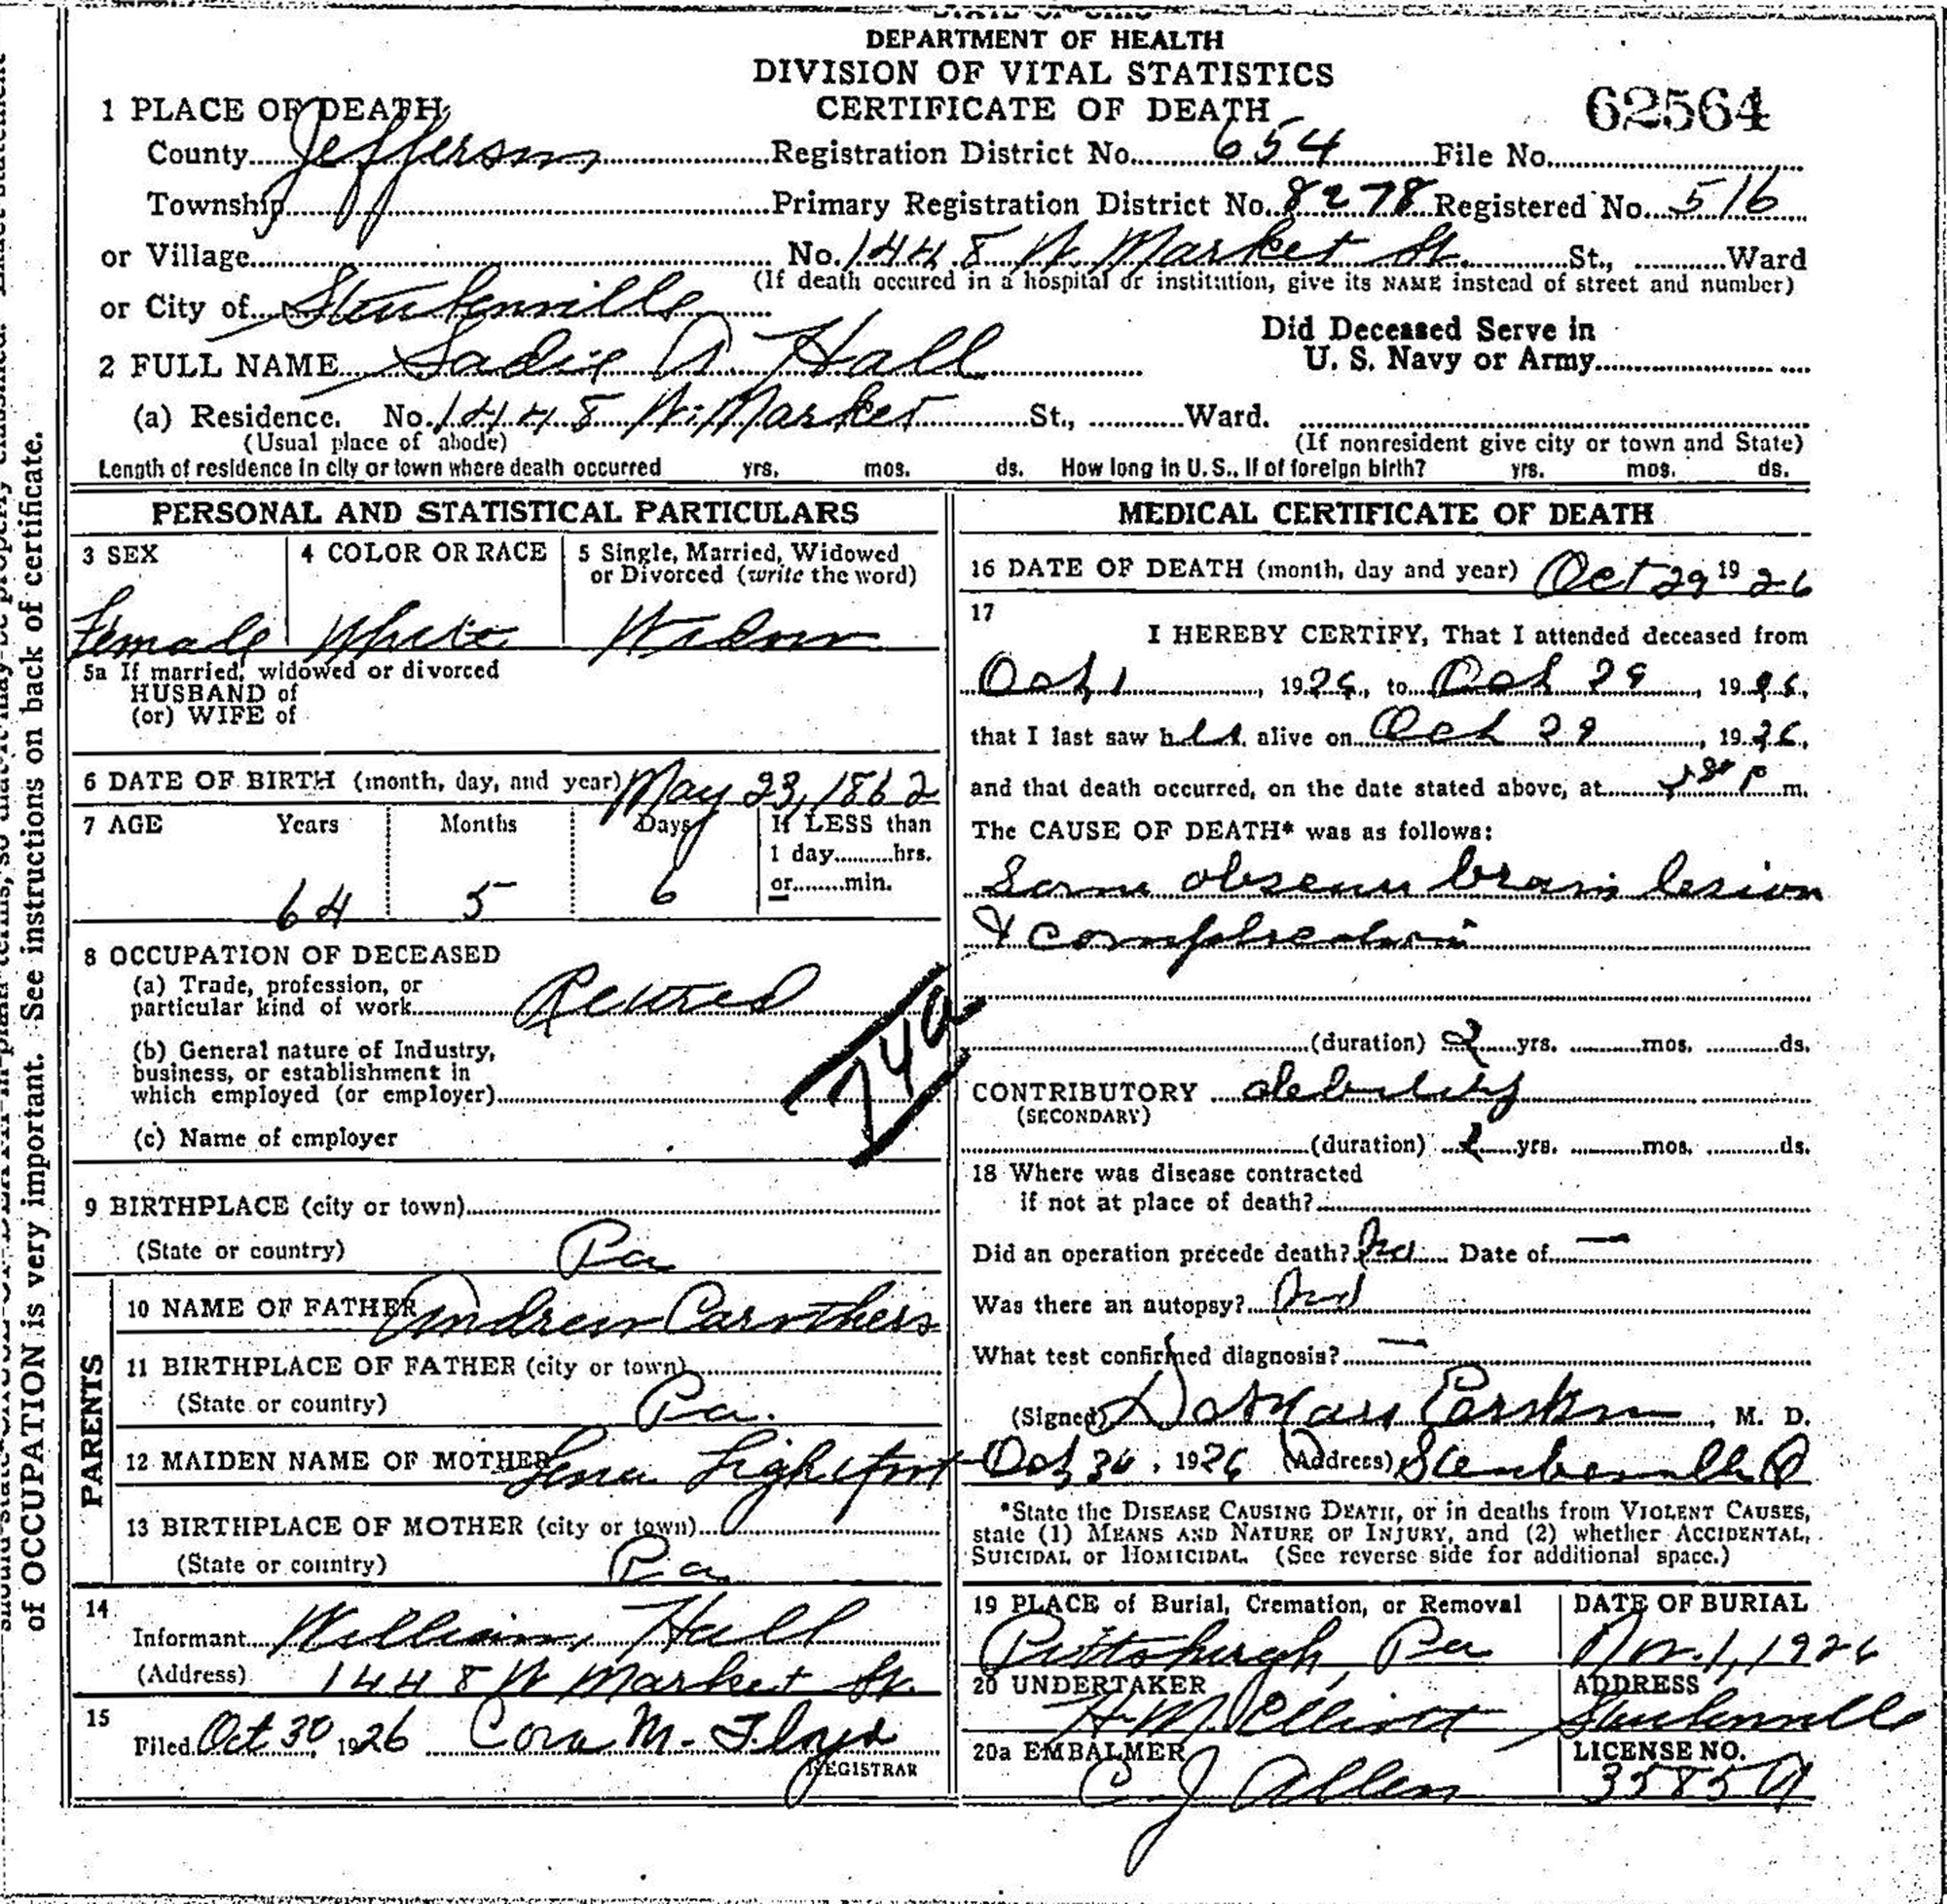 DEPARTMENT OF HEALTH
DIVISION OF VITAL STATISTICS
CERTIFICATE OF DEATH
62564
1 PLACE OF DEATH
County Jefferson Registration District No. 654 File No.
Township Primary Registration District No. 8278 Registered No. 516
or Village No. 1448 W Market St. St., Ward
(If death occured in a hospital or institution, give its NAME instead of street and number)
or City of Steubenville
Did Deceased Serve in
U. S. Navy or Army
2 FULL NAME Sadie A. Hall
(a) Residence. No. 1448 W. Market St., Ward.
(Usual place of abode) (If nonresident give city or town and State)
Length of residence in city or town where death occurred yrs. mos. ds. How long in U. S., if of foreign birth? yrs. mos. ds.
PERSONAL AND STATISTICAL PARTICULARS
3 SEX 4 COLOR OR RACE 5 Single, Married, Widowed
or Divorced (write the word)
Female White Widow
5a If married, widowed or divorced
HUSBAND of
(or) WIFE of
6 DATE OF BIRTH (month, day, and year) May 23, 1862
7 AGE Years Months Days If LESS than
1 day hrs.
or min.
64 5 6
8 OCCUPATION OF DECEASED
(a) Trade, profession, or
particular kind of work Retired
(b) General nature of Industry,
business, or establishment in
which employed (or employer)
(c) Name of employer
74a
9 BIRTHPLACE (city or town)
(State or country) Pa
PARENTS
10 NAME OF FATHER Andrew Caruthers
11 BIRTHPLACE OF FATHER (city or town)
(State or country) Pa.
12 MAIDEN NAME OF MOTHER Lightfoot
13 BIRTHPLACE OF MOTHER (city or town)
(State or country) Pa
14
Informant William Hall
(Address) 1448 W Market St.
15
Filed Oct 30, 1926 Cora M. Floyd
REGISTRAR
MEDICAL CERTIFICATE OF DEATH
16 DATE OF DEATH (month, day and year) Oct 29 1926
17
I HEREBY CERTIFY, That I attended deceased from
Oct 1, 1926, to Oct 29, 1926,
that I last saw her alive on Oct 29, 1926,
and that death occurred, on the date stated above, at P m.
The CAUSE OF DEATH* was as follows:
Some obscure brain lesion
& complication
(duration) 2 yrs. mos. ds.
CONTRIBUTORY debility
(SECONDARY)
(duration) 2 yrs. mos. ds.
18 Where was disease contracted
if not at place of death?
Did an operation precede death? No Date of —
Was there an autopsy? No
What test confirmed diagnosis? —
(Signed) Erskine, M. D.
Oct 30, 1926 (Address) Steubenville O
*State the DISEASE CAUSING DEATH, or in deaths from VIOLENT CAUSES,
state (1) MEANS AND NATURE OF INJURY, and (2) whether ACCIDENTAL,
SUICIDAL or HOMICIDAL. (See reverse side for additional space.)
19 PLACE of Burial, Cremation, or Removal DATE OF BURIAL
Pittsburgh, Pa Nov. 1, 1926
20 UNDERTAKER ADDRESS
H. M. Elliott Steubenville
20a EMBALMER LICENSE NO.
C J Allen 3585A
of OCCUPATION is very important. See instructions on back of certificate.